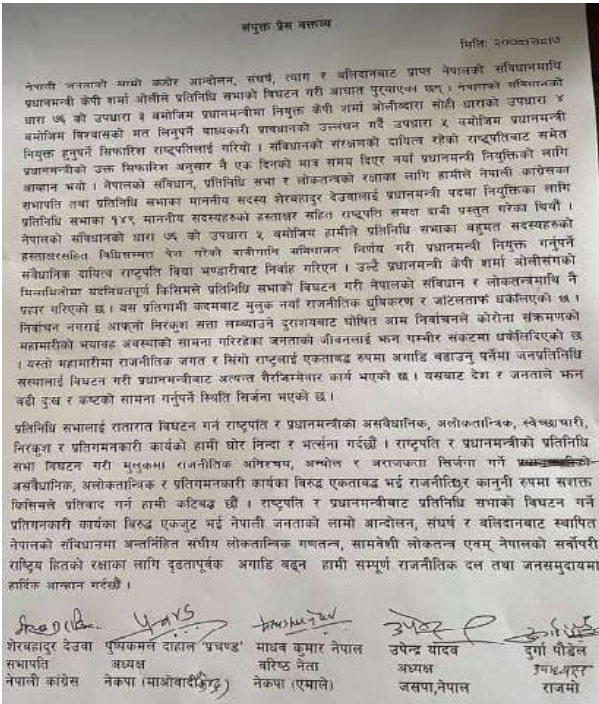 संयुक्त प्रेस वक्तव्य
मितिः २०७८।२।८
नेपाली जनताको लामो कठोर आन्दोलन, संघर्ष, त्याग र बलिदानबाट प्राप्त नेपालको संविधानमाथि
प्रधानमन्त्री केपी शर्मा ओलीले प्रतिनिधि सभाको विघटन गरी आघात पुर्‍याएका छन् । नेपालको संविधानको
धारा ७६ को उपधारा ३ बमोजिम प्रधानमन्त्रीमा नियुक्त केपी शर्मा ओलीव्दारा सोही धाराको उपधारा ४
बमोजिम विश्वासको मत लिनुपर्ने बाध्यकारी प्रावधानको उल्लंघन गर्दै उपधारा ५ बमोजिम प्रधानमन्त्री
नियुक्त हुनुपर्ने सिफारिश राष्ट्रपतिलाई गरियो । संविधानको संरक्षणको दायित्व रहेको राष्ट्रपतिबाट समेत
प्रधानमन्त्रीको उक्त सिफारिश अनुसार नै एक दिनको मात्र समय दिएर नयाँ प्रधानमन्त्री नियुक्तिको लागि
आव्हान भयो । नेपालको संविधान, प्रतिनिधि सभा र लोकतन्त्रको रक्षाका लागि हामीले नेपाली कांग्रेसका
सभापति तथा प्रतिनिधि सभाका माननीय सदस्य शेरबहादुर देउवालाई प्रधानमन्त्री पदमा नियुक्तिका लागि
प्रतिनिधि सभाका १४९ माननीय सदस्यहरुको हस्ताक्षर सहित राष्ट्रपति समक्ष दावी प्रस्तुत गरेका थियौं ।
नेपालको संविधानको धारा ७६ को उपधारा ५ बमोजिम हामीले प्रतिनिधि सभाका बहुमत सदस्यहरुको
हस्ताक्षरसहित विधिसम्मत पेश गरेको दावीमाथि संविधानतः निर्णय गरी प्रधानमन्त्री नियुक्त गर्नुपर्ने
संवैधानिक दायित्व राष्ट्रपति विद्या भण्डारीबाट निर्वाह गरिएन । उल्टै प्रधानमन्त्री केपी शर्मा ओलीसँगको
मिलोमतोमा षडयन्त्रपूर्ण किसिमले प्रतिनिधि सभाको विघटन गरी नेपालको संविधान र लोकतन्त्रमाथि नै
प्रहार गरिएको छ । यस प्रतिगामी कदमबाट मुलुक नयाँ राजनीतिक ध्रुविकरण र जटिलतार्फ धकेलिएको छ ।
निर्वाचन नगराई आफ्नो निरंकुश सत्ता लम्ब्याउने दुराशयबाट घोषित आम निर्वाचनले कोरोना संक्रमणको
महामारीको भयावह अवस्थाको सामना गरिरहेका जनताको जीवनलाई झन गम्भीर संकटमा धकेलिदिएको छ
। यस्तो महामारीमा राजनीतिक जगत र सिंगो राष्ट्रलाई एकताबद्ध रुपमा अगाडि बढाउनु पर्नेमा जनप्रतिनिधि
संस्थालाई विघटन गरी प्रधानमन्त्रीबाट अत्यन्त गैरजिम्मेवार कार्य भएको छ । यसबाट देश र जनताले झन
बढी दुःख र कष्टको सामना गर्नुपर्ने स्थिति सिर्जना भएको छ ।
प्रतिनिधि सभालाई रातारात विघटन गर्न राष्ट्रपति र प्रधानमन्त्रीका असवैधानिक, अलोकतान्त्रिक, स्वेच्छाचारी,
निरंकुश र प्रतिगमनकारी कार्यको हामी घोर निन्दा र भर्त्सना गर्दछौं । राष्ट्रपति र प्रधानमन्त्रीको प्रतिनिधि
सभा विघटन गरी मुलुकमा राजनीतिक अनिश्चय, अन्योल र अराजकता सिर्जना गर्ने
असवैधानिक, अलोकतान्त्रिक र प्रतिगमनकारी कार्यका विरुद्ध एकताबद्ध भई राजनीतिक र कानुनी रुपमा सशक्त
किसिमले प्रतिवाद गर्न हामी कटिबद्ध छौं । राष्ट्रपति र प्रधानमन्त्रीबाट प्रतिनिधि सभाको विघटन गर्ने
प्रतिगमनकारी कार्यका विरुद्ध एकजुट भई नेपाली जनताको लामो आन्दोलन, संघर्ष र बलिदानबाट स्थापित
नेपालको संविधानमा अन्तर्निहित संघीय लोकतान्त्रिक गणतन्त्र, सामवेशी लोकतन्त्र एवम् नेपालको सर्वोपरी
राष्ट्रिय हितको रक्षाका लागि दृढतापूर्वक अगाडि बढ्न हामी सम्पूर्ण राजनीतिक दल तथा जनसमुदायमा
हार्दिक आव्हान गर्दछौं ।
शेरबहादुर देउवा पुष्पकमल दाहाल 'प्रचण्ड' माधव कुमार नेपाल उपेन्द्र यादव दुर्गा पौडेल
सभापति अध्यक्ष वरिष्ठ नेता अध्यक्ष उपाध्यक्ष
नेपाली कांग्रेस नेकपा (माओवादी केन्द्र) नेकपा (एमाले) जसपा,नेपाल राजमो